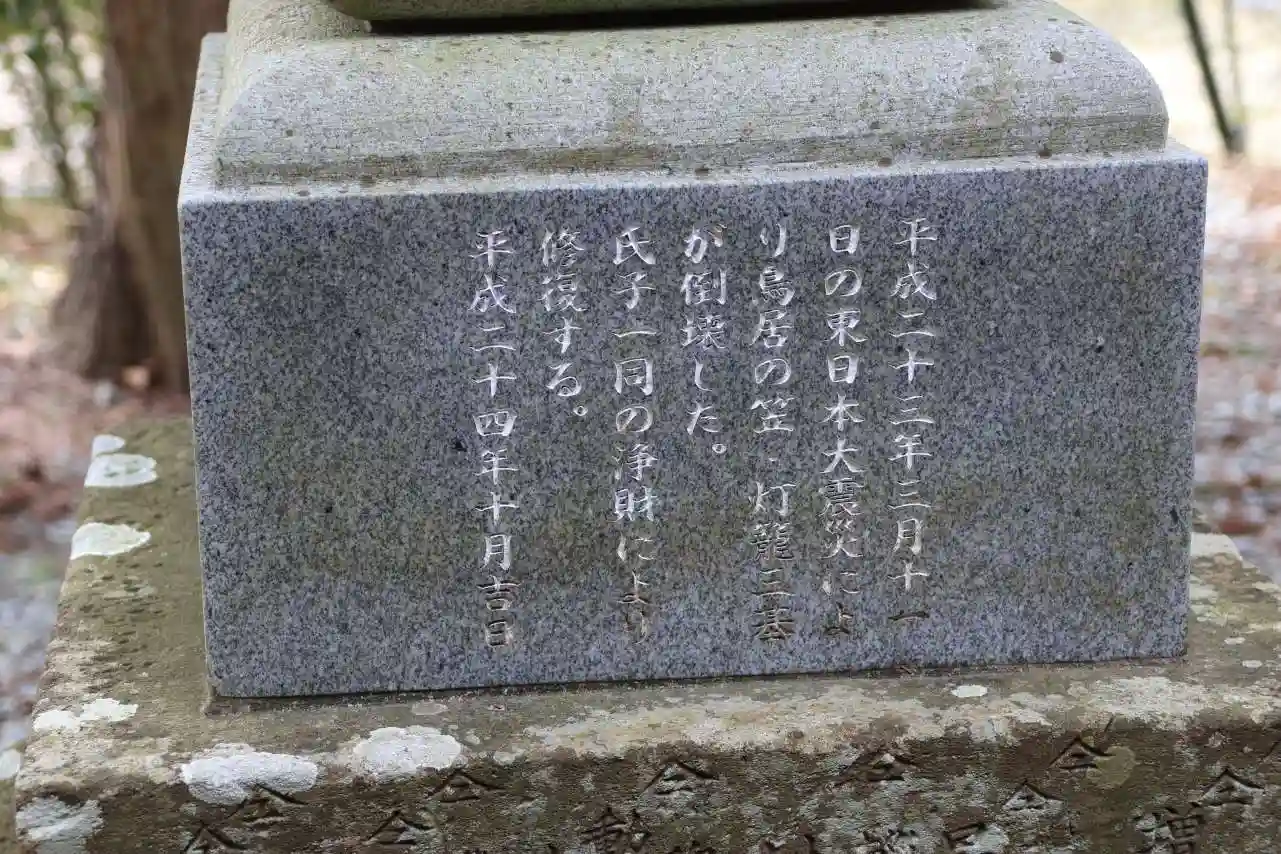 平成二十三年三月十一
日の東日本大震災によ
り鳥居の笠・灯籠三基
が倒壊した。
氏子一同の浄財により
修復する。
平成二十四年十月吉日
仝 仝 仝 仝 仝
仝 仝 仝 仝
増